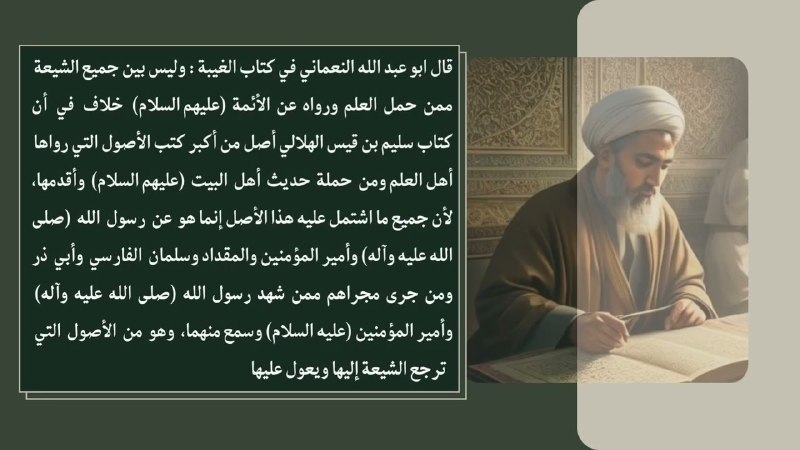 قال ابو عبد الله النعماني في كتاب الغيبة : وليس بين جميع الشيعة
ممن حمل العلم ورواه عن الأئمة (عليهم السلام) خلاف في أن
كتاب سليم بن قيس الهلالي أصل من أكبر كتب الأصول التي رواها
أهل العلم ومن حملة حديث أهل البيت (عليهم السلام) وأقدمها،
لأن جميع ما اشتمل عليه هذا الأصل إنما هو عن رسول الله (صلى
الله عليه وآله) وأمير المؤمنين والمقداد وسلمان الفارسي وأبي ذر
ومن جرى مجراهم ممن شهد رسول الله (صلى الله عليه وآله)
وأمير المؤمنين (عليه السلام) وسمع منهما، وهو من الأصول التي
ترجع الشيعة إليها ويعول عليها